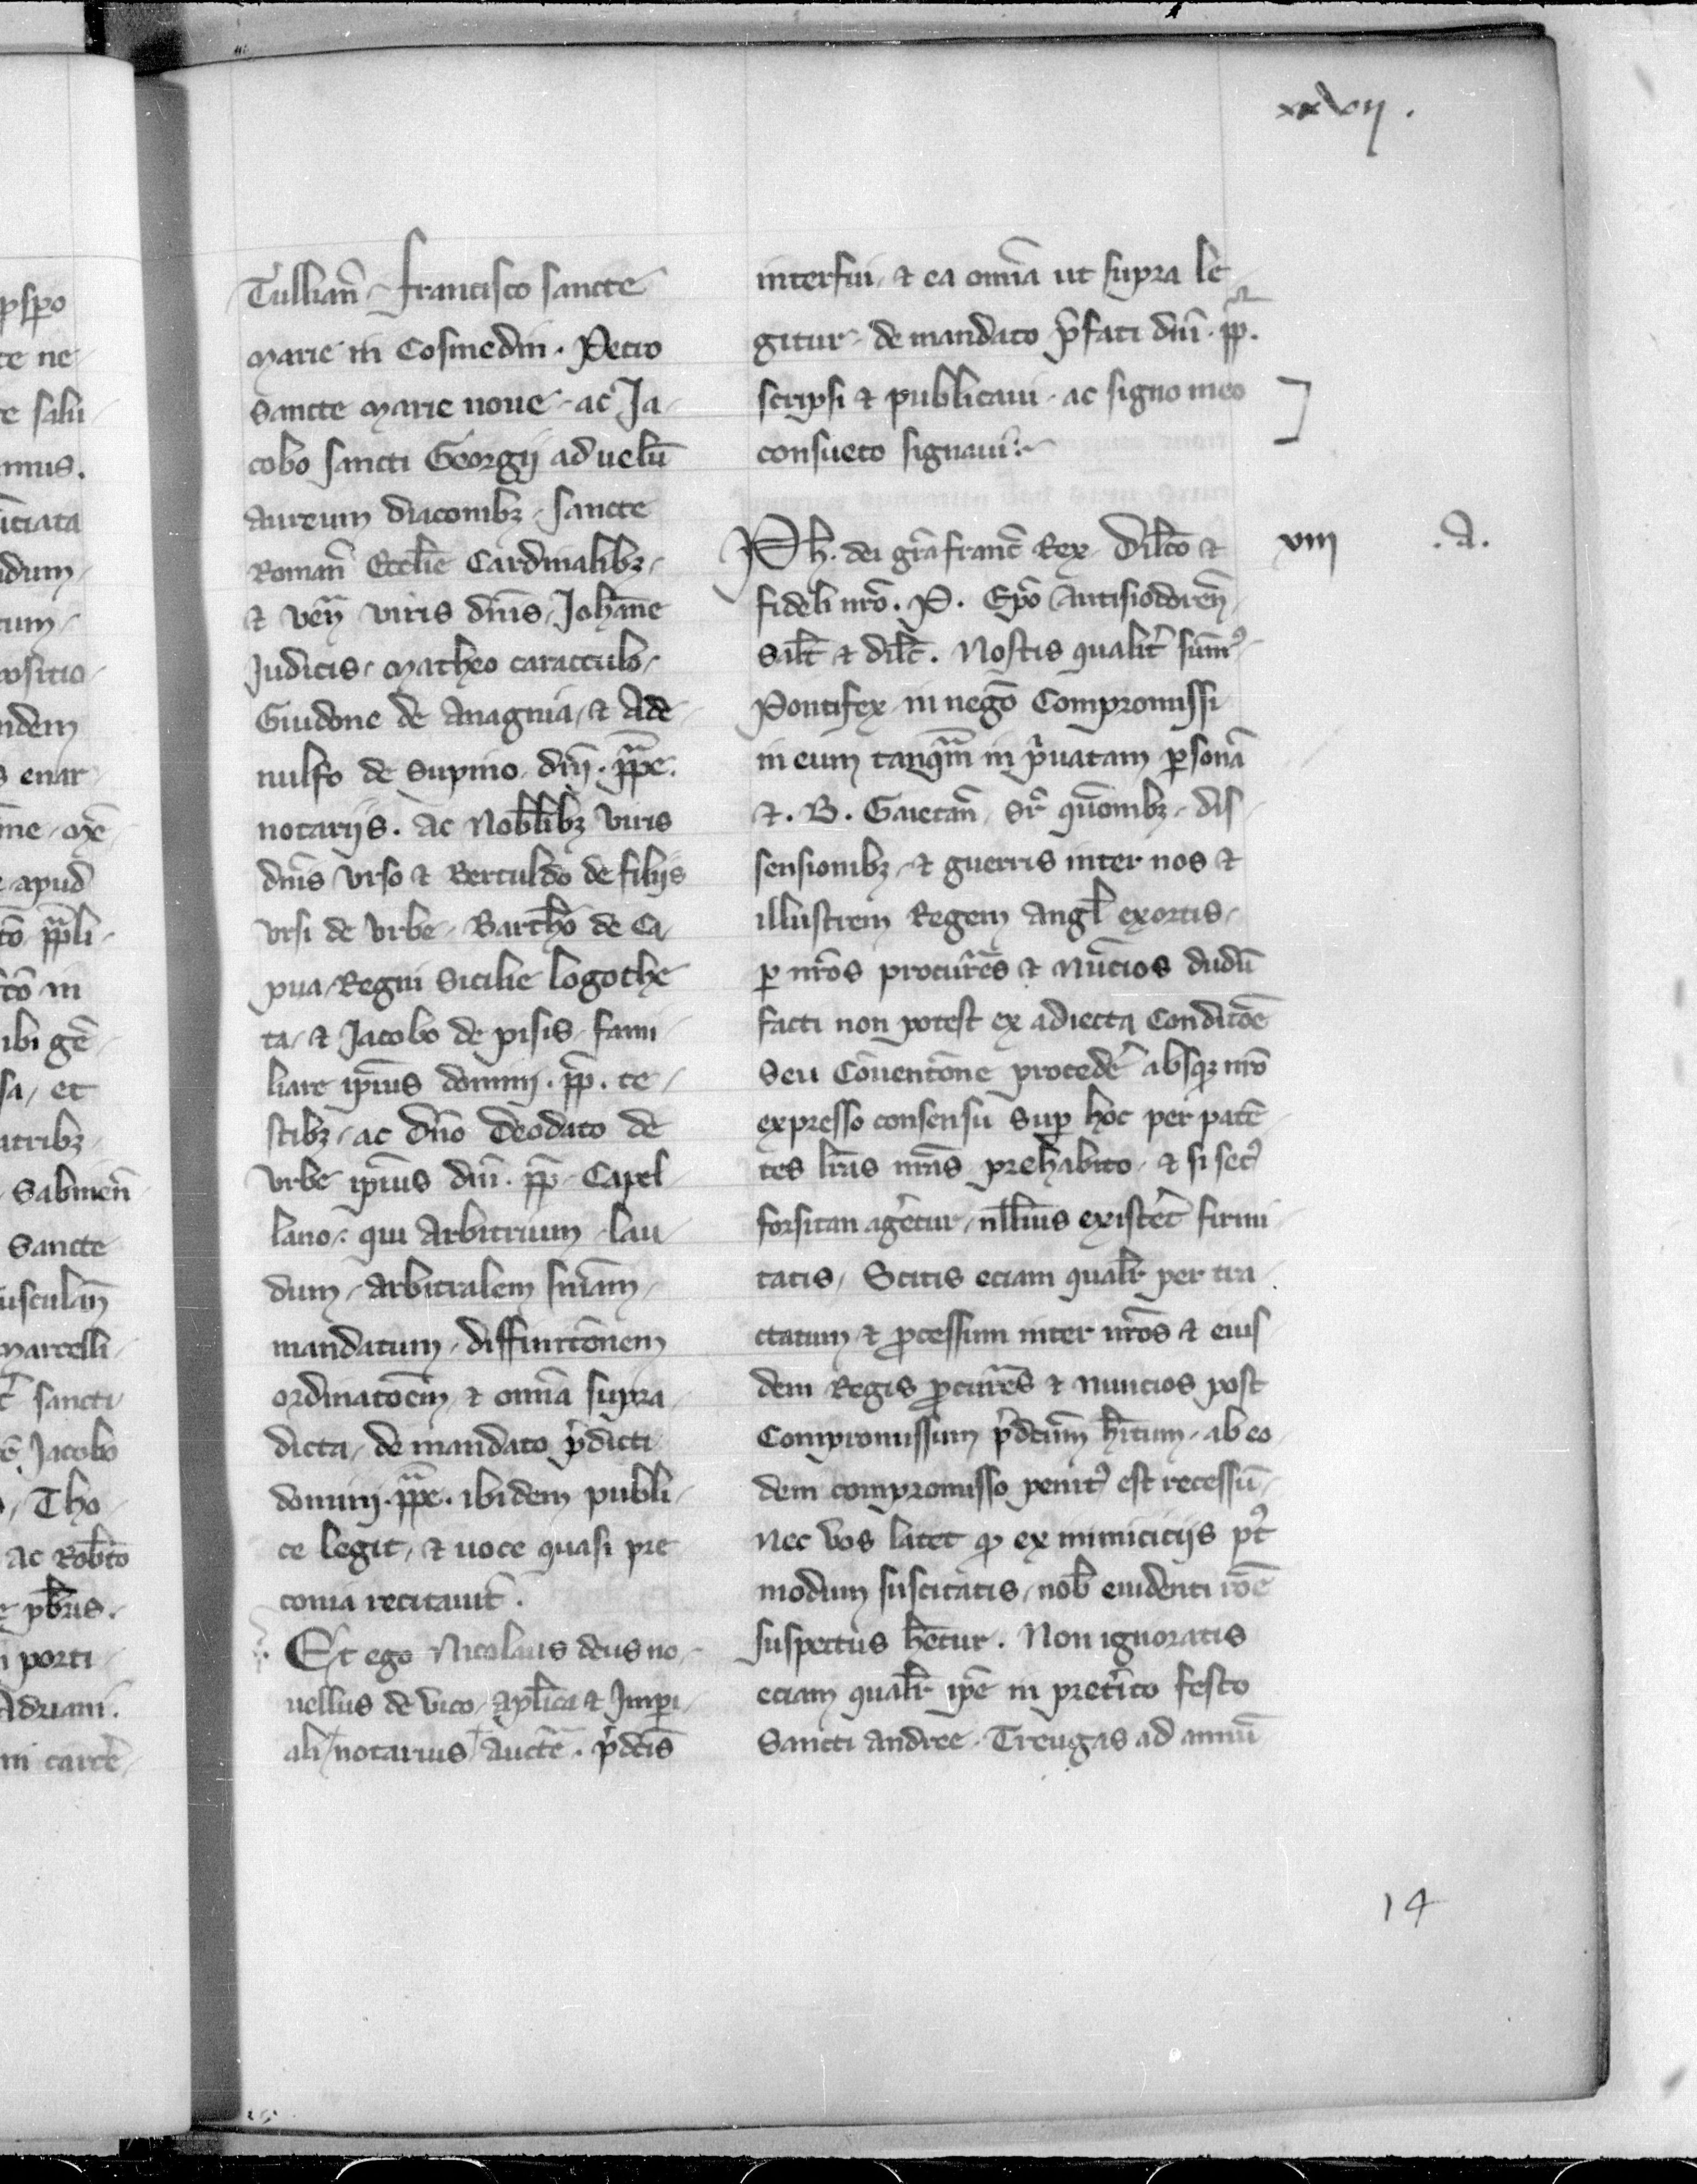 xxvij.
Tullian̄ francisco sancte
Marie in Cosmedin. Petro
Sancte Marie noue ac Ja
cobo sancti Georgij ad uelū
Aureum diaconibꝫ sancte
Roman̄ Eccl̄ie Cardinalibꝫ
⁊ ven̄ viris dn̄is Joh̄anne
Judicis Matheo caracculo
Guidone de Anagnia ⁊ Ade
nulfo de Supino dn̄i . pp̄e.
notarijs. Ac Nobilibꝫ viris
dn̄is Vrso ⁊ Bertuldo de filijs
Vrsi de Vrbe Barth̄o de Ca
pua Regni Sicilie logothe
ta ⁊ Jacobo de pisis fami
liare ip̄ius domini . pp̄. te
stibꝫ ac dn̄o Deodato de
Vrbe ip̄ius dn̄i . pp̄ Capel
lano: qui Arbitrium lau
dum Arbitralem sn̄iam
mandatum diffinitōnem
ordinatōem ⁊ omīa supra
dicta de mandato p̄dicti
domini . pp̄e. ibidem publi
ce legit ⁊ uoce quasi pre
conia recitauit.
Et ego Nicolaus deus no
uellus de Vico Apl̄ica ⁊ Imperi
ali notarius auct̄e . p̄dc̄is
interfui ⁊ ea omīa ut supra le
gitur de mandato p̄fati dn̄i . pp̄.
scripsi ⁊ publicaui ac signo meo
consueto signaui:
Ph. dei gr̄a franc̄ Rex Dil̄co ⁊
fideli nr̄o . P. Ep̄o Antisiodoren̄
Sal̄t ⁊ dil̄c. Nostis qualit̄ sum̄
Pontifex in negō Compromissi
in eum tanq̄m in p̄uatam ꝑsonā
⁊ . B. Gaietan̄ sr̄ qūōnibꝫ dis
sensionibꝫ ⁊ guerris inter nos ⁊
illustrem Regem Angl̄ exortis
ꝑ nr̄os procur̄es ⁊ Nūcios dudū
facti non potest ex adiecta Conditōe
Seu Cōuentōne procedē absqꝫ nr̄o
expresso consensu Suꝑ hoc per patē
tes lr̄as nr̄as prehabito ⁊ si sec̄
forsitan aḡetur nl̄lius existēt firmi
tatis Scitis eciam qualr̄ per tra
ctatum ⁊ ꝓcessum inter nr̄os ⁊ eius
dem Regis ꝓcur̄es ⁊ nuncios post
Compromissum p̄dc̄um h̄itum ab eo
dem compromisso penit̄ est recessū
Nec vos latet ꝙ ex inimicicijs p̄t
modum suscitatis nob̄ euidenti rōe
suspectus h̄etur. Non ignoratis
eciam qualr̄ ip̄e in pret̄ito festo
Sancti Andree Treugas ad annū
viii .A.
14